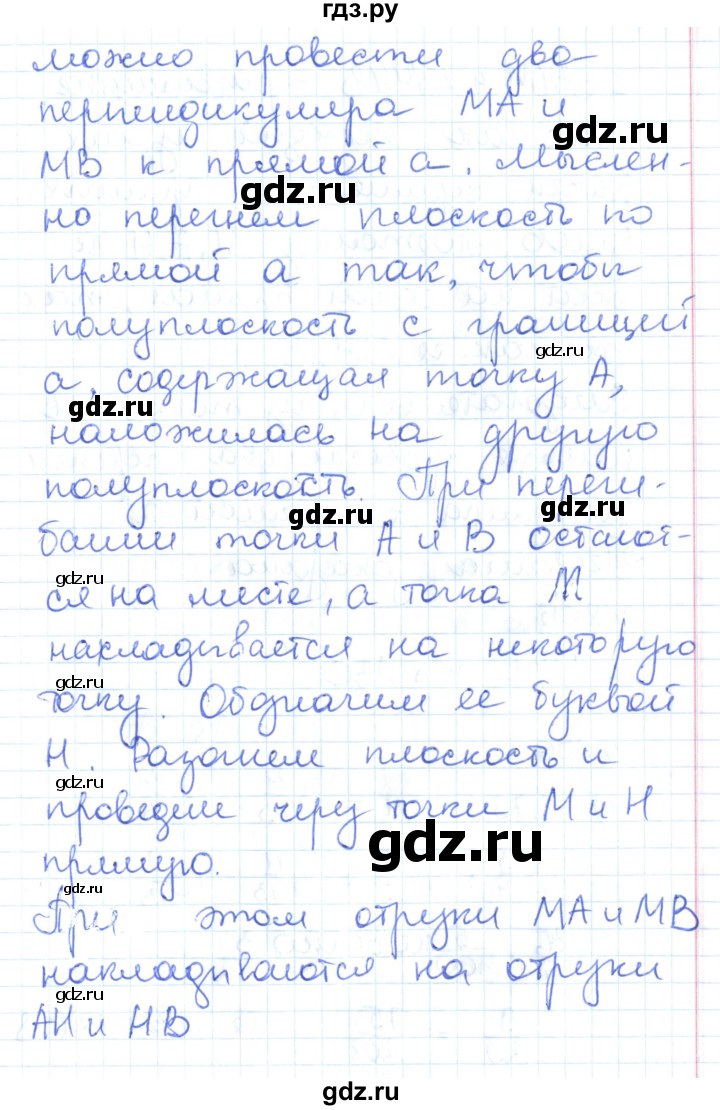 гдз.ру
можно провести два
перпендикуляра МА и
gdz.ru
МВ к прямой а. Мыслен-
gdz.ru
но перегнем плоскость по
прямой а так, чтобы
полуплоскость с границей
gdz.ru
а, содержащая точку А,
gdz.ru
наложилась на другую
полуплоскость. При переги-
gdz.ru
gdz.ru
бании точки А и В остают-
gdz.ru
ся на месте, а точка М
накладывается на некоторую
gdz.ru
точку. Обозначим ее буквой
Н. Разогнем плоскость и
gdz.ru
проведем через точки М и Н
gdz.ru
прямую.
gdz.ru
При этом отрезки МА и МВ
накладываются на отрезки
gdz.ru
АН и НВ
gdz.ru